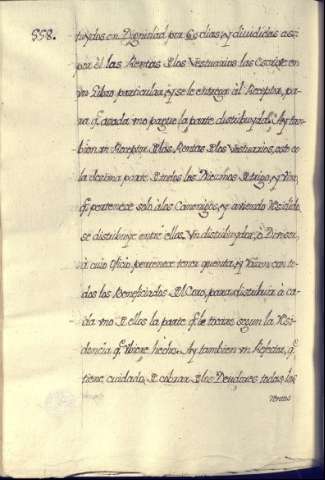 558.
tuydos en Dignidad por 60 dias, y divididas assi
por èl las Rentas de los Vestuarios las escrive en
un Libro particular, y se le entrega al Receptor, pa-
ra q̃ a cada uno pague la parte distribuyda. Ay tam-
bien un Receptor de las Rentas de los Vestuarios, este es
la decima parte de todos los Diezmos de trigo, y Vino,
q̃ pertenece solo à los Canonigos, y aviendo residido
se distribuye entre ellos. Un distribuydor, ò
à cuio Oficio pertenece tener quenta, y Razon con to-
dos los Beneficiados del Coro, para distribuir à ca-
da uno de ellos la parte q̃ le tocare segun la Resi-
dencia q̃ ubiere hecho. Ay tambien un Refector, q̃
tiene cuidado de cobrar de los Deudores todas las
rentas